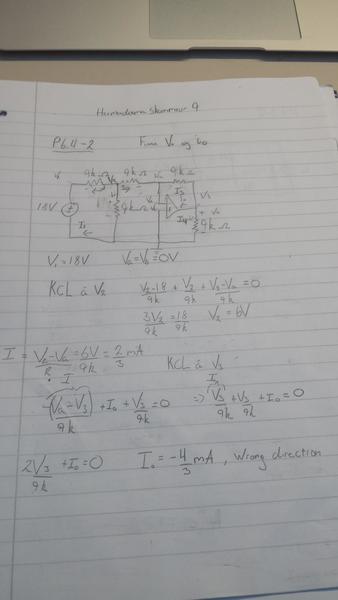 P6.4-2 Find V₀ og i₀
9kΩ 9kΩ 9kΩ
18V 9kΩ 9kΩ
V₁ = 18V Vₐ = V_b = 0V
KCL á V₂ (V₂-18)/9k + V₂/9k + (V₂-Vₐ)/9k = 0
3V₂/9k = 18/9k V₂ = 6V
I = (V₂-Vₐ)/R = 6V/9k = 2/3 mA KCL á V₃
-(Vₐ-V₃)/9k + I₀ + V₃/9k = 0 => V₃/9k + V₃/9k + I₀ = 0
2V₃/9k + I₀ = 0 I₀ = -4/3 mA, Wrong direction